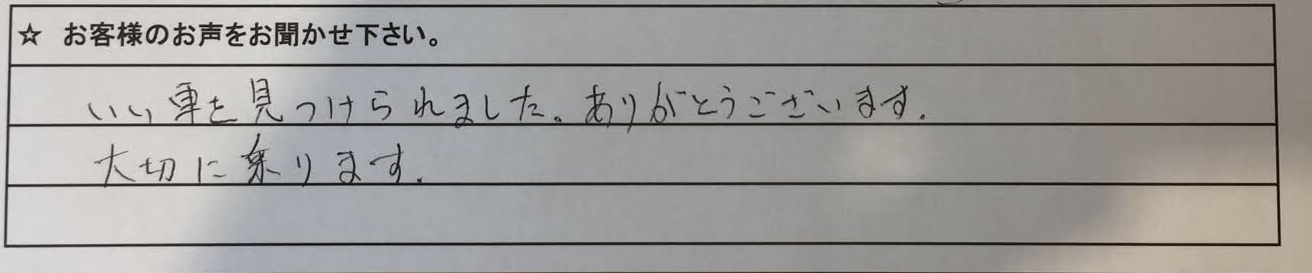 ☆ お客様のお声をお聞かせ下さい。
いい車を見つけられました。ありがとうございます.
大切に乗ります.